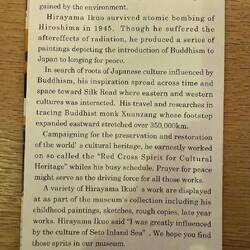 gained by the environment.
Hirayama Ikuo survived atomic bombing of
Hiroshima in 1945. Though he suffered the
aftereffects of radiation, he produced a series of
paintings depicting the introduction of Buddhism to
Japan to longing for peace.
In search of roots of Japanese culture influenced by
Buddhism, his inspiration spread across time and
space toward Silk Road where eastern and western
cultures was interacted. His travel and researches in
tracing Buddhist monk Xuanzang whose footstep
expanded eastward stretched over 350,000km.
Campaigning for the preservation and restoration
of the world' s cultural heritage, he earnestly worked
on so called the "Red Cross Spirit for Cultural
Heritage" whiles his busy schedule. Prayer for peace
might serve as the driving force for all those works.
A variety of Hirayama Ikuo' s work are displayed
at as part of the museum's collection including his
childhood paintings, sketches, rough copies, late year
works. Hirayama Ikuo said "I was greatly influenced
by the culture of Seto Inland Sea" . We hope you find
those sprits in our museum.